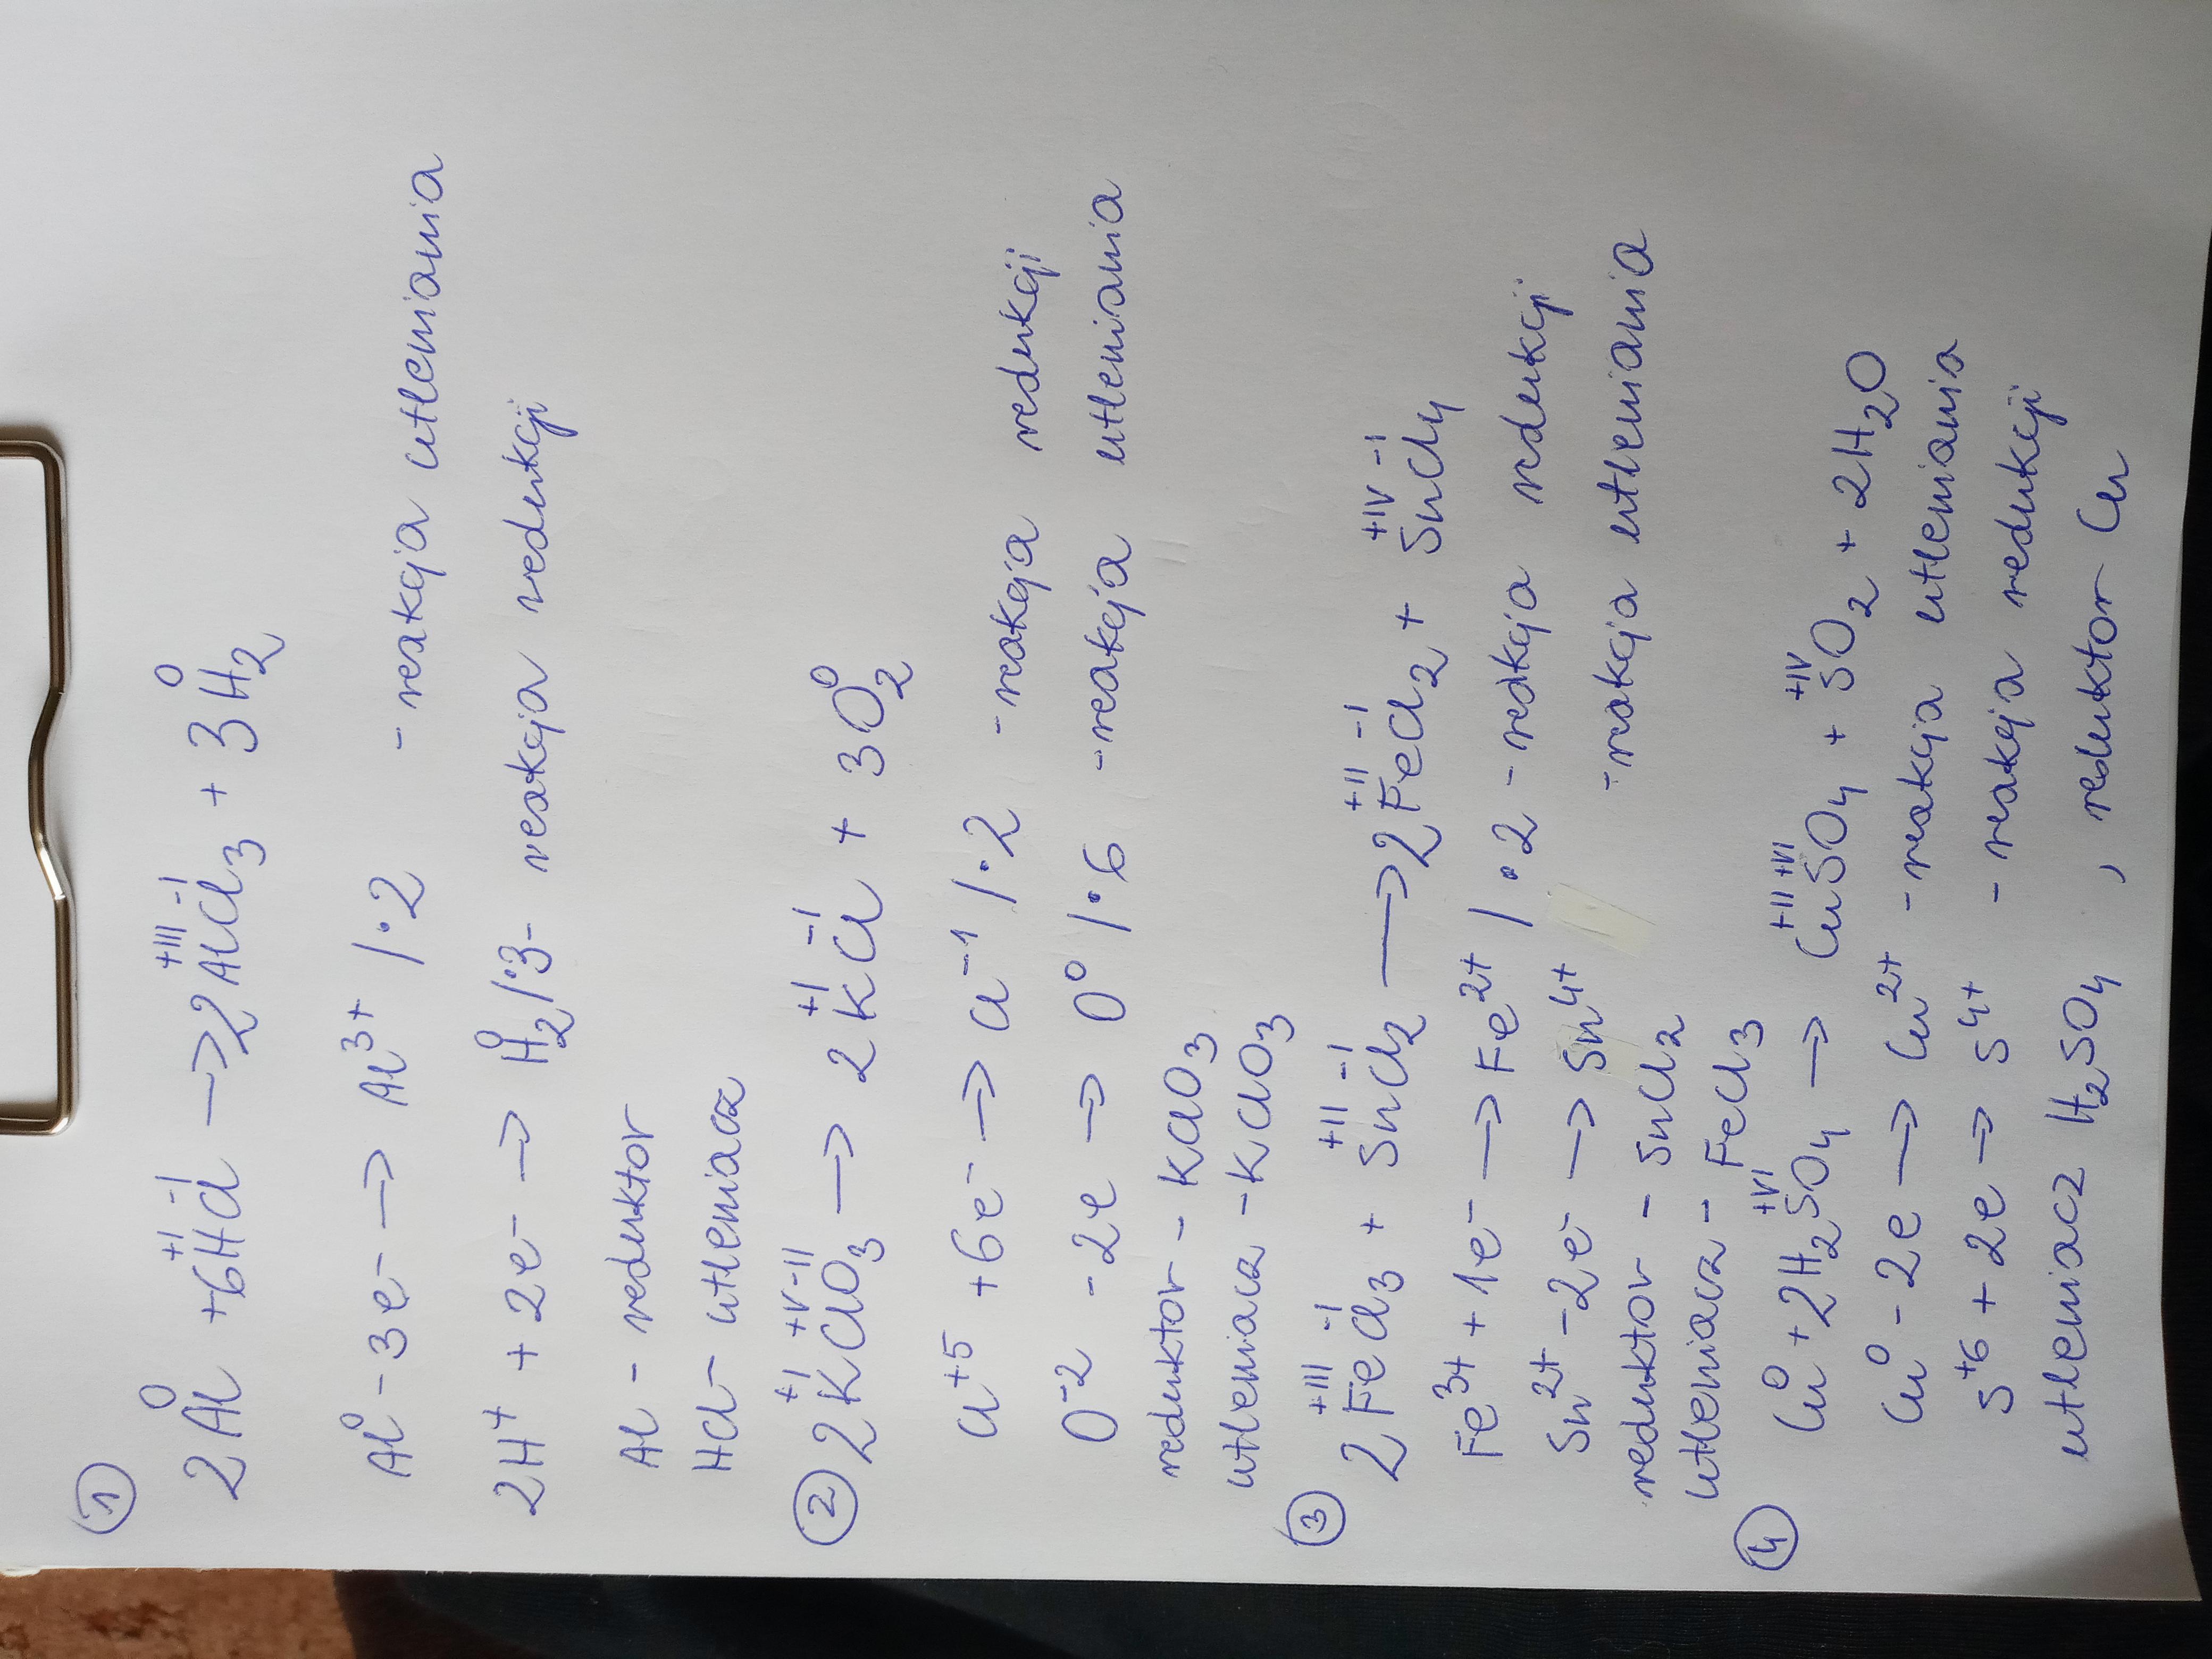 ①
2Al⁰ + 6H⁺ᴵCl⁻ᴵ → 2Al⁺ᴵᴵᴵCl₃⁻ᴵ + 3H₂⁰
Al⁰ - 3e⁻ → Al³⁺ /·2 - reakcja utleniania
2H⁺ + 2e⁻ → H₂⁰ /·3 - reakcja redukcji
Al - reduktor
HCl - utleniacz
②
2K⁺ᴵCl⁺ⱽO₃⁻ᴵᴵ → 2K⁺ᴵCl⁻ᴵ + 3O₂⁰
Cl⁺⁵ + 6e⁻ → Cl⁻¹ /·2 - reakcja redukcji
O⁻² - 2e → O⁰ /·6 - reakcja utleniania
reduktor - KClO₃
utleniacz - KClO₃
③
2Fe⁺ᴵᴵᴵCl₃⁻ᴵ + Sn⁺ᴵᴵCl₂⁻ᴵ → 2Fe⁺ᴵᴵCl₂⁻ᴵ + Sn⁺ᴵⱽCl₄⁻ᴵ
Fe³⁺ + 1e⁻ → Fe²⁺ /·2 - redkcja redukcji
Sn²⁺ - 2e⁻ → Sn⁴⁺ - reakcja utleniania
reduktor - SnCl₂
utleniacz - FeCl₃
④
Cu⁰ + 2H₂S⁺ⱽᴵO₄ → Cu⁺ᴵᴵS⁺ⱽᴵO₄ + S⁺ᴵⱽO₂ + 2H₂O
Cu⁰ - 2e → Cu²⁺ - reakcja utleniania
S⁺⁶ + 2e → S⁴⁺ - reakcja redukcji
utleniacz H₂SO₄, reduktor Cu